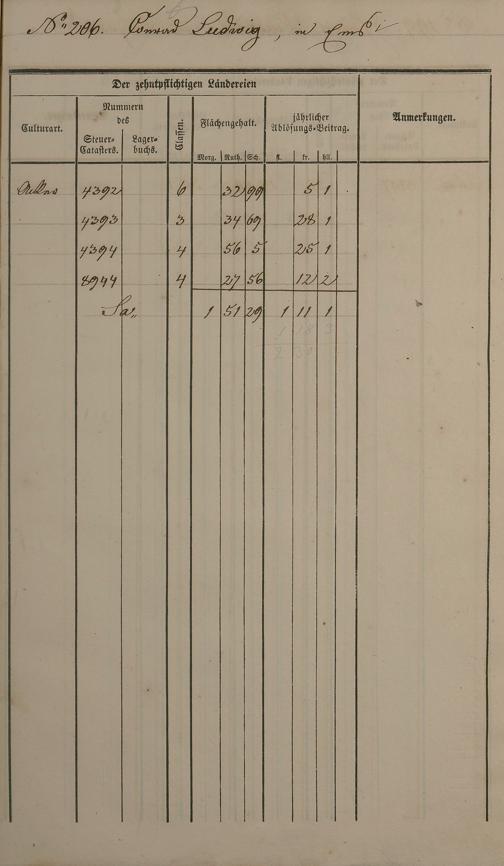 No. 206. Conrad Ludwig, in Ems
Der zehntpflichtigen Ländereien
Culturart.
Nummern des
Steuer-Catasters.
Lager-buchs.
Classen.
Flächengehalt.
Morg. Ruth. Sch.
jährlicher Ablösungs-Beitrag.
fl. kr. hll.
Anmerkungen.
4392 6 32 99 5 1
4393 3 34 69 28 1
4394 4 56 5 25 1
8944 4 27 56 12 2
Sa. 1 51 29 1 11 1